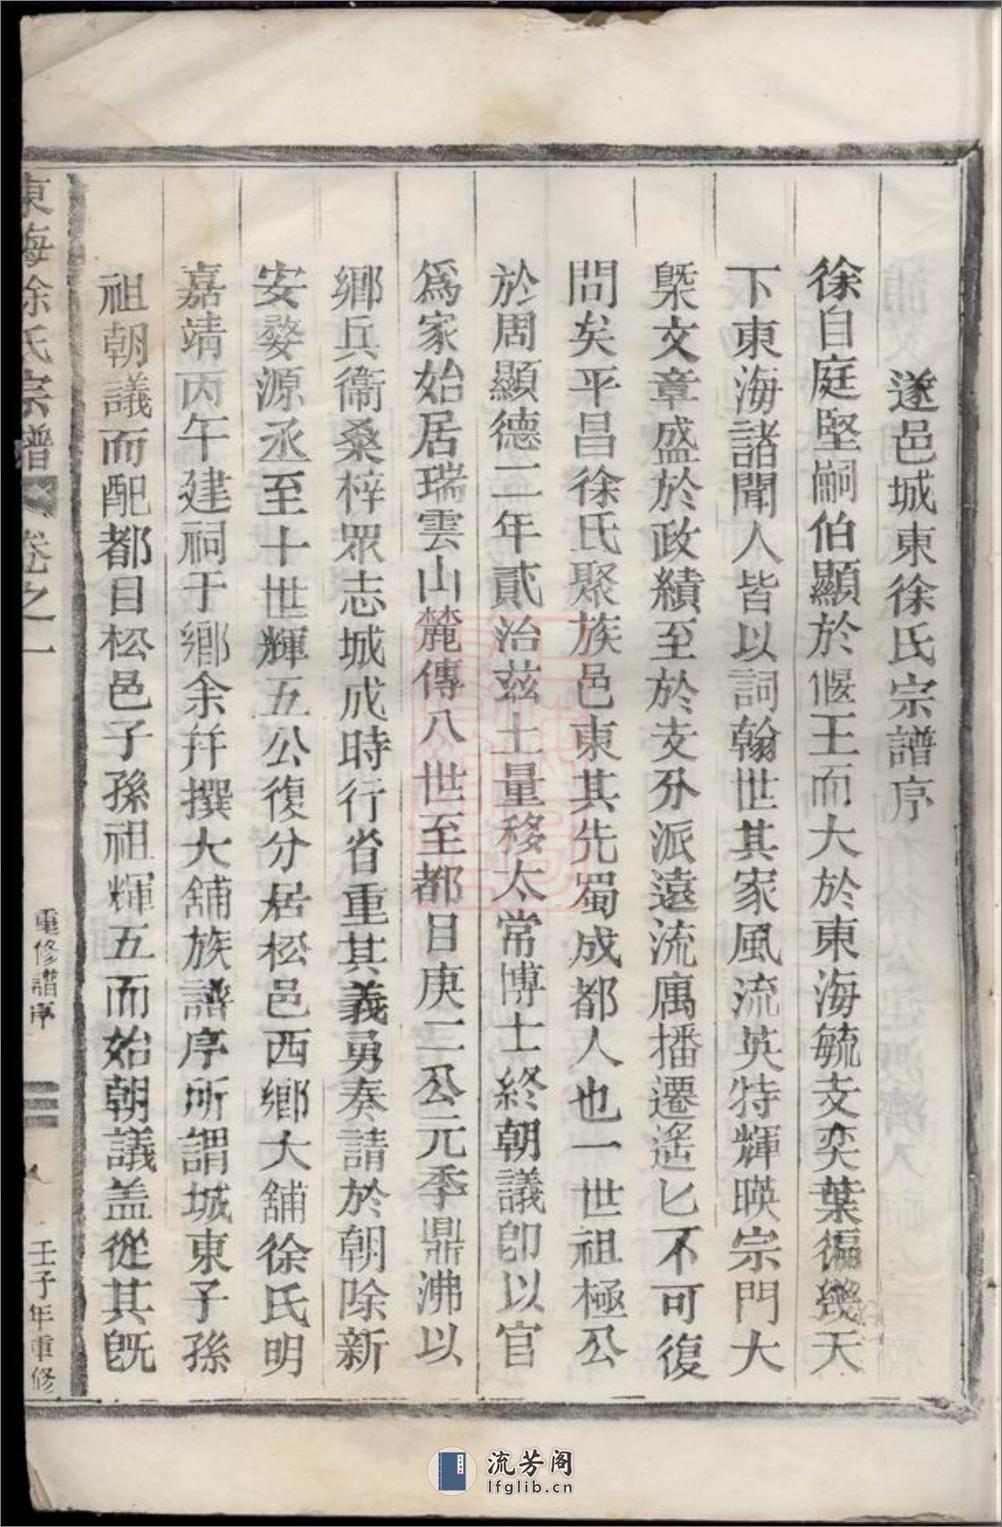 遂邑城東徐氏宗譜序
徐自庭堅嗣伯顯於偃王而大於東海毓支奕葉徧幾天
下東海諸聞人皆以詞翰世其家風流英特輝暎宗門大
槩文章盛於政績至於支分派遠流寓播遷遙匕不可復
問矣平昌徐氏聚族邑東其先蜀成都人也一世祖極公
於周顯德二年貳治茲土量移太常博士終朝議卽以官
爲家始居瑞雲山麓傳八世至都目庚二公元季鼎沸以
鄉兵衞桑梓眾志城成時行省重其義勇奏請於朝除新
安婺源丞至十世輝五公復分居松邑西鄉大舖徐氏明
嘉靖丙午建祠于鄉余幷撰大舖族譜序所謂城東子孫
祖朝議而配都目松邑子孫祖輝五而始朝議盖從其旣
東海徐氏宗譜
卷之一
重修譜序
壬子年重修
流芳阁
lfglib.cn